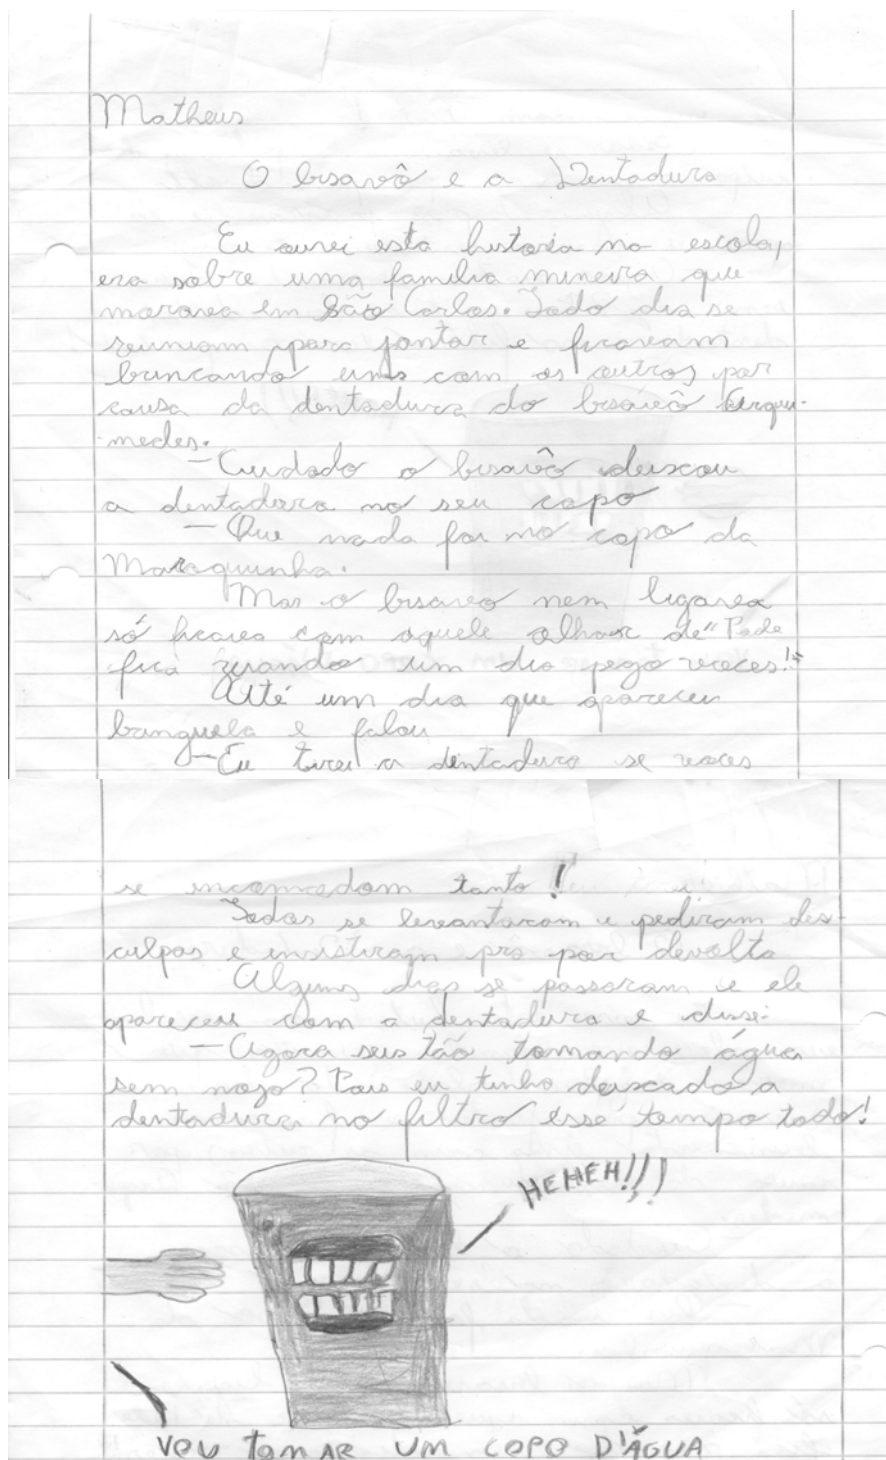 Matheus
O bisavô e a Dentadura
Eu ouvi esta historia na escola,
era sobre uma família mineira que
morava em São Carlos. Todo dia se
reuniam para jantar e ficavam
brincando uns com os outros por
causa da dentadura do bisavô Arqui-
-medes.
- Cuidado o bisavô deixou
a dentadura no seu copo
- Que nada foi no copo da
Maraquinha.
Mas o bisavo nem ligava
só ficava com aquele olhar de "Pode
fica zuando um dia pego voces!"
Até um dia que apareceu
banguela e falou
- Eu tirei a dentadura se voces
se incomodam tanto!
Todos se levantaram e pediram des-
culpas e insistiram pra por devolta
Alguns dias se passaram e ele
apareceu com a dentadura e disse:
- Agora seis tão tomando água
sem nojo? Pois eu tinho deixado a
dentadura no filtro esse tempo todo!
HEHEH!!!
VOU TOMAR UM COPO D'ÁGUA